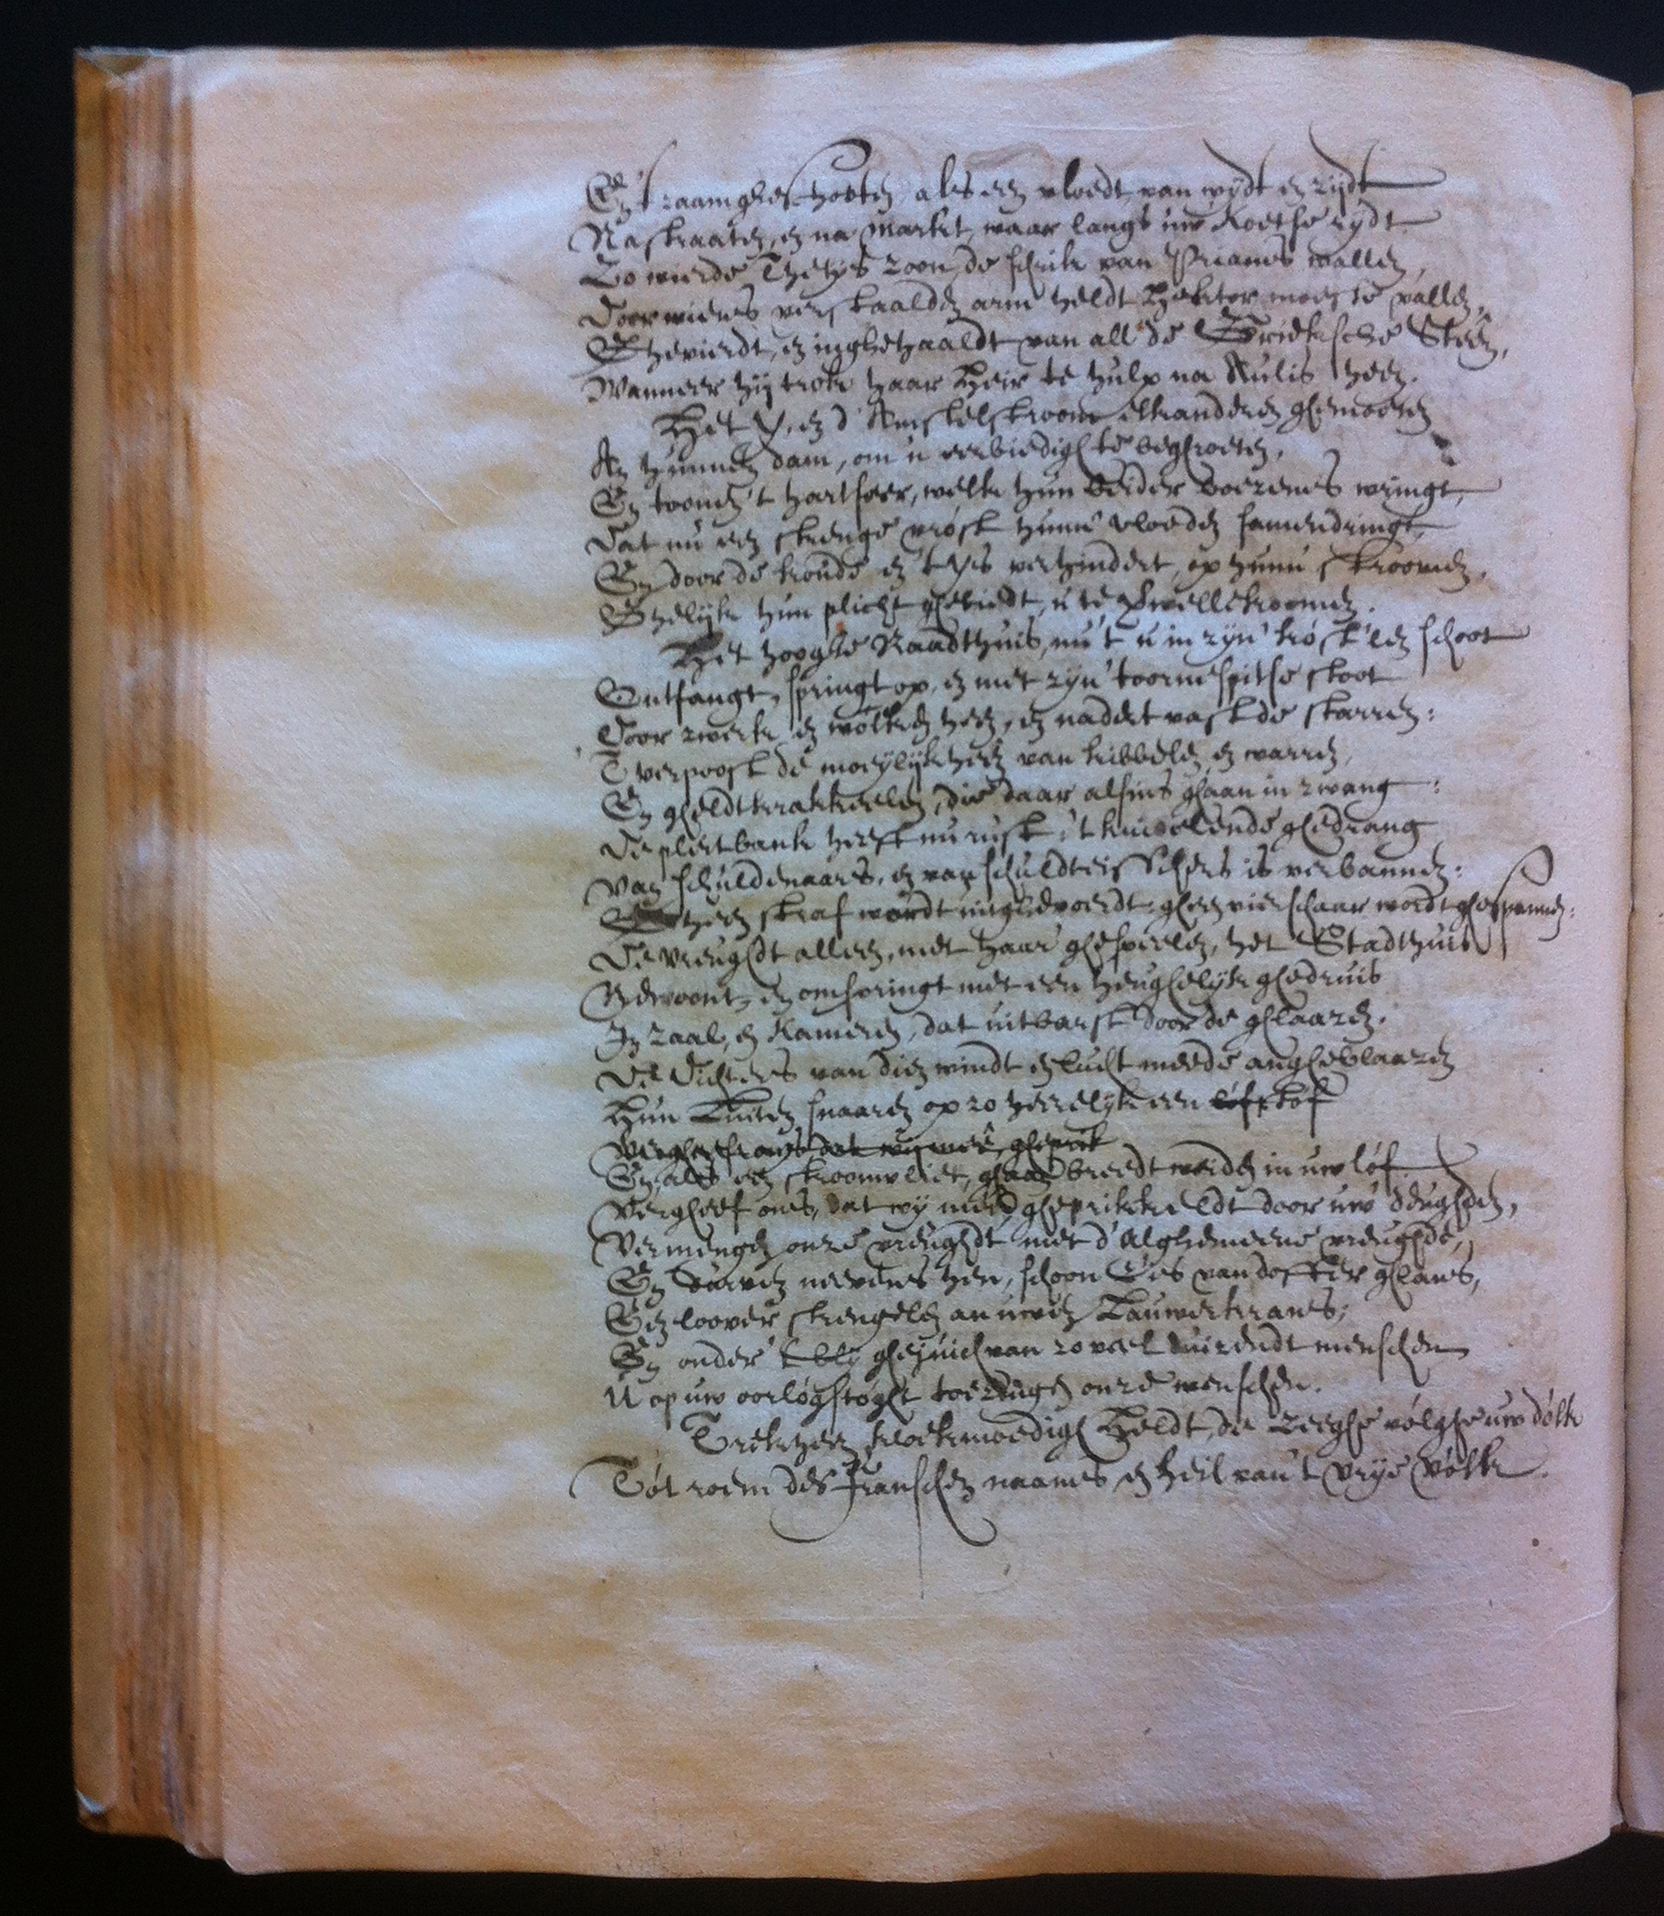 En 't zaamgheschooten, als een vloedt, van wydt en zydt
Na straaten, en na markt, waar langs uw Koetse rydt.
Zo wierde Thetys zoon, de schrik van Priams wallen,
Door wiens verstaalden arm heldt Hektor moeste vallen,
Ghevierdt, en inghehaaldt van all' de Grieksche Steên,
Wanneer hij trok haar Heir te hulp na Aulis heen.
Het Y, en d' Amstelstroom elkanderen ghemoeten
An hunnen dam, om u eerbiedigh te beghroeten,
En toonen 't hartseer, welk hun beider boezems wringt,
Dat nu een strenge vrost hunn' vloeden samendringt,
En door de koude en 't Ys verhindert, op hunn' stroomen,
Ghelijk hun plicht ghebiedt, u te ghwellekoomen.
Het hooghe Raadthuis, nu 't u in zyn' kost'len schoot
Ontfangt, springt op, en met zyn' toornespitse stoot
Door zwerk en wolken heen, en nadert vast de starren:
T verpoost de moeylijkheên van kibbelen en warren,
En gheldtkrakkeelen, die daar alsins ghaan in zwang:
De pleitbank heeft nu rust: 't krioelende ghedrang
Van schuldenaars, en van schuldteisschers is verbannen:
Gheen straf wordt uitghevoerdt: gheen vierschaar wordt ghespannen:
De vreughdt alleen, met haar' ghespeelen, het Stadthuis
Bewoont, en omspringt met een heughelijk ghedruis
In zaal, en Kameren, dat uitbarst door de ghlaazen.
De Dichters van dien windt en lucht meede angheblaazen
Hun Luiten snaaren op zo heerelijk een lofs stof
Vergheef ons dat wij meê, gheprik
En, als een stroomvliet, ghaan breedt weiden in uw lof.
Vergheef ons, dat wy meê gheprikkeldt door uw' deughden,
Vermengen onze vreughdt met d' Alghemeene vreughde,
En durven neevens hen, schoon Dis van doffer ghlans,
Een loover strengelen an uwen Lauwerkrans;
En onder 't bly ghejuich van zo veel duizendt menschen
U op uw oorloghstoght toezeugen onze wenschen.
Trek heen kloekmoedigh Heldt, de zeeghe volghe uw dolk
Tot roem des Franschen naams, en heil van 't vrye Volk.